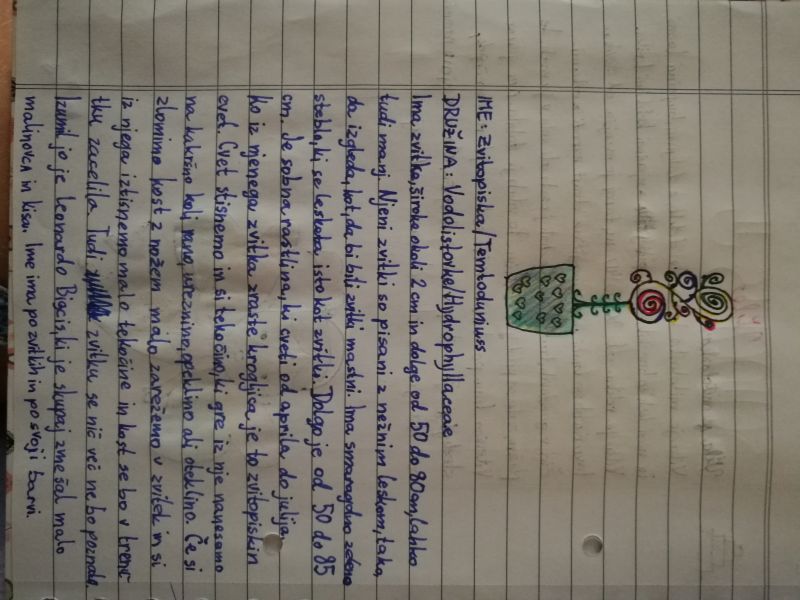 IME: Zvitopiska/Temtoduniuss
DRUŽINA: Vodolistovke/Hydrophyllaceae
Ima zvitke, široke okoli 2 cm in dolge od 50 do 80 cm, lahko
tudi manj. Njeni zvitki so pisani z nežnim leskom, tako,
da izgleda, kot, da bi bili zvitki mastni. Ima smaragdno zeleno
steblo, ki se leskeče, isto kot zvitki. Dolgo je od 50 do 85
cm. Je sobna rastlina, ki cveti od aprila do julija,
ko iz njenega zvitka zraste krogljica je to zvitopiskin
cvet. Cvet stisnemo in si tekočino, ki gre iz nje nanesemo
na kakršno koli rano, ureznino, opeklino ali oteklino. Če si
zlomimo kost z nožem malo zarežemo v zvitek in si
iz njega iztisnemo malo tekočine in kost se bo v trenut
tku zacelila. Tudi zvitku se nič več ne bo poznalo.
Izumil jo je Leonardo Biscis, ki je skupaj zmešal malo
malinovca in kisa. Ime ima po zvitkih in po svoji barvi.